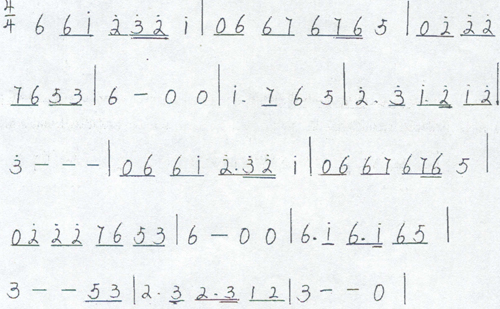 4/4 6 6 i̇ 2̇ 3̇ 2̇ i | 0 6 6 7 6 7 6 5 | 0 2̇ 2̇ 2̇
7 6 5 3 | 6 – 0 0 | i. 7 6 5 | 2̇. 3̇ i. 2̇ i 2̇ |
3̇ – – – | 0 6 6 i 2̇. 3̇ 2̇ i | 0 6 6 7 6 7 6 5 |
0 2̇ 2̇ 2̇ 7 6 5 3 | 6 – 0 0 | 6. i 6. i 6 5 |
3 – – 5 3 | 2. 3 2. 3 1 2 | 3 – – 0 |